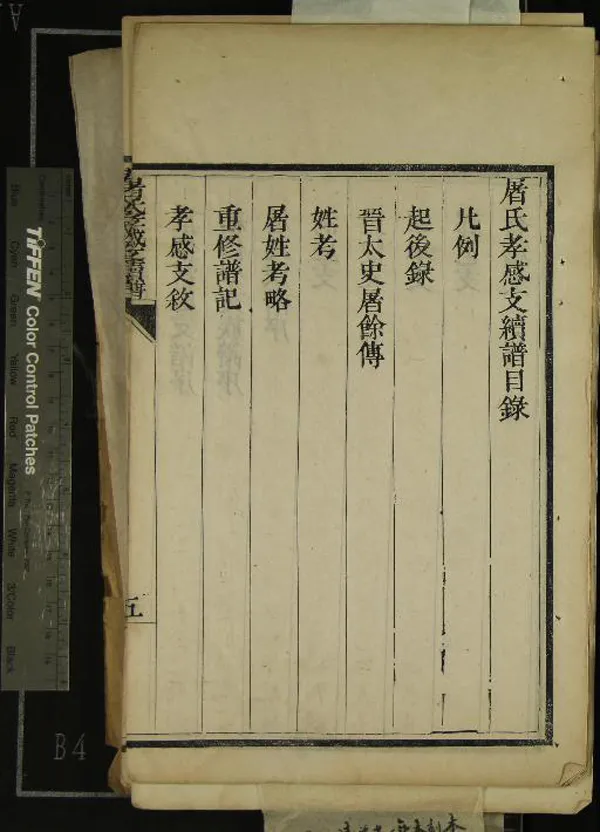 屠氏孝感支續譜目錄
凡例
起後錄
晉太史屠餘傳
姓考
屠姓考略
重修譜記
孝感支敘
屠氏孝感支續譜
五
TIFFEN Color Control Patches
Blue Cyan Green Yellow Red Magenta White 3/Color Black
B4